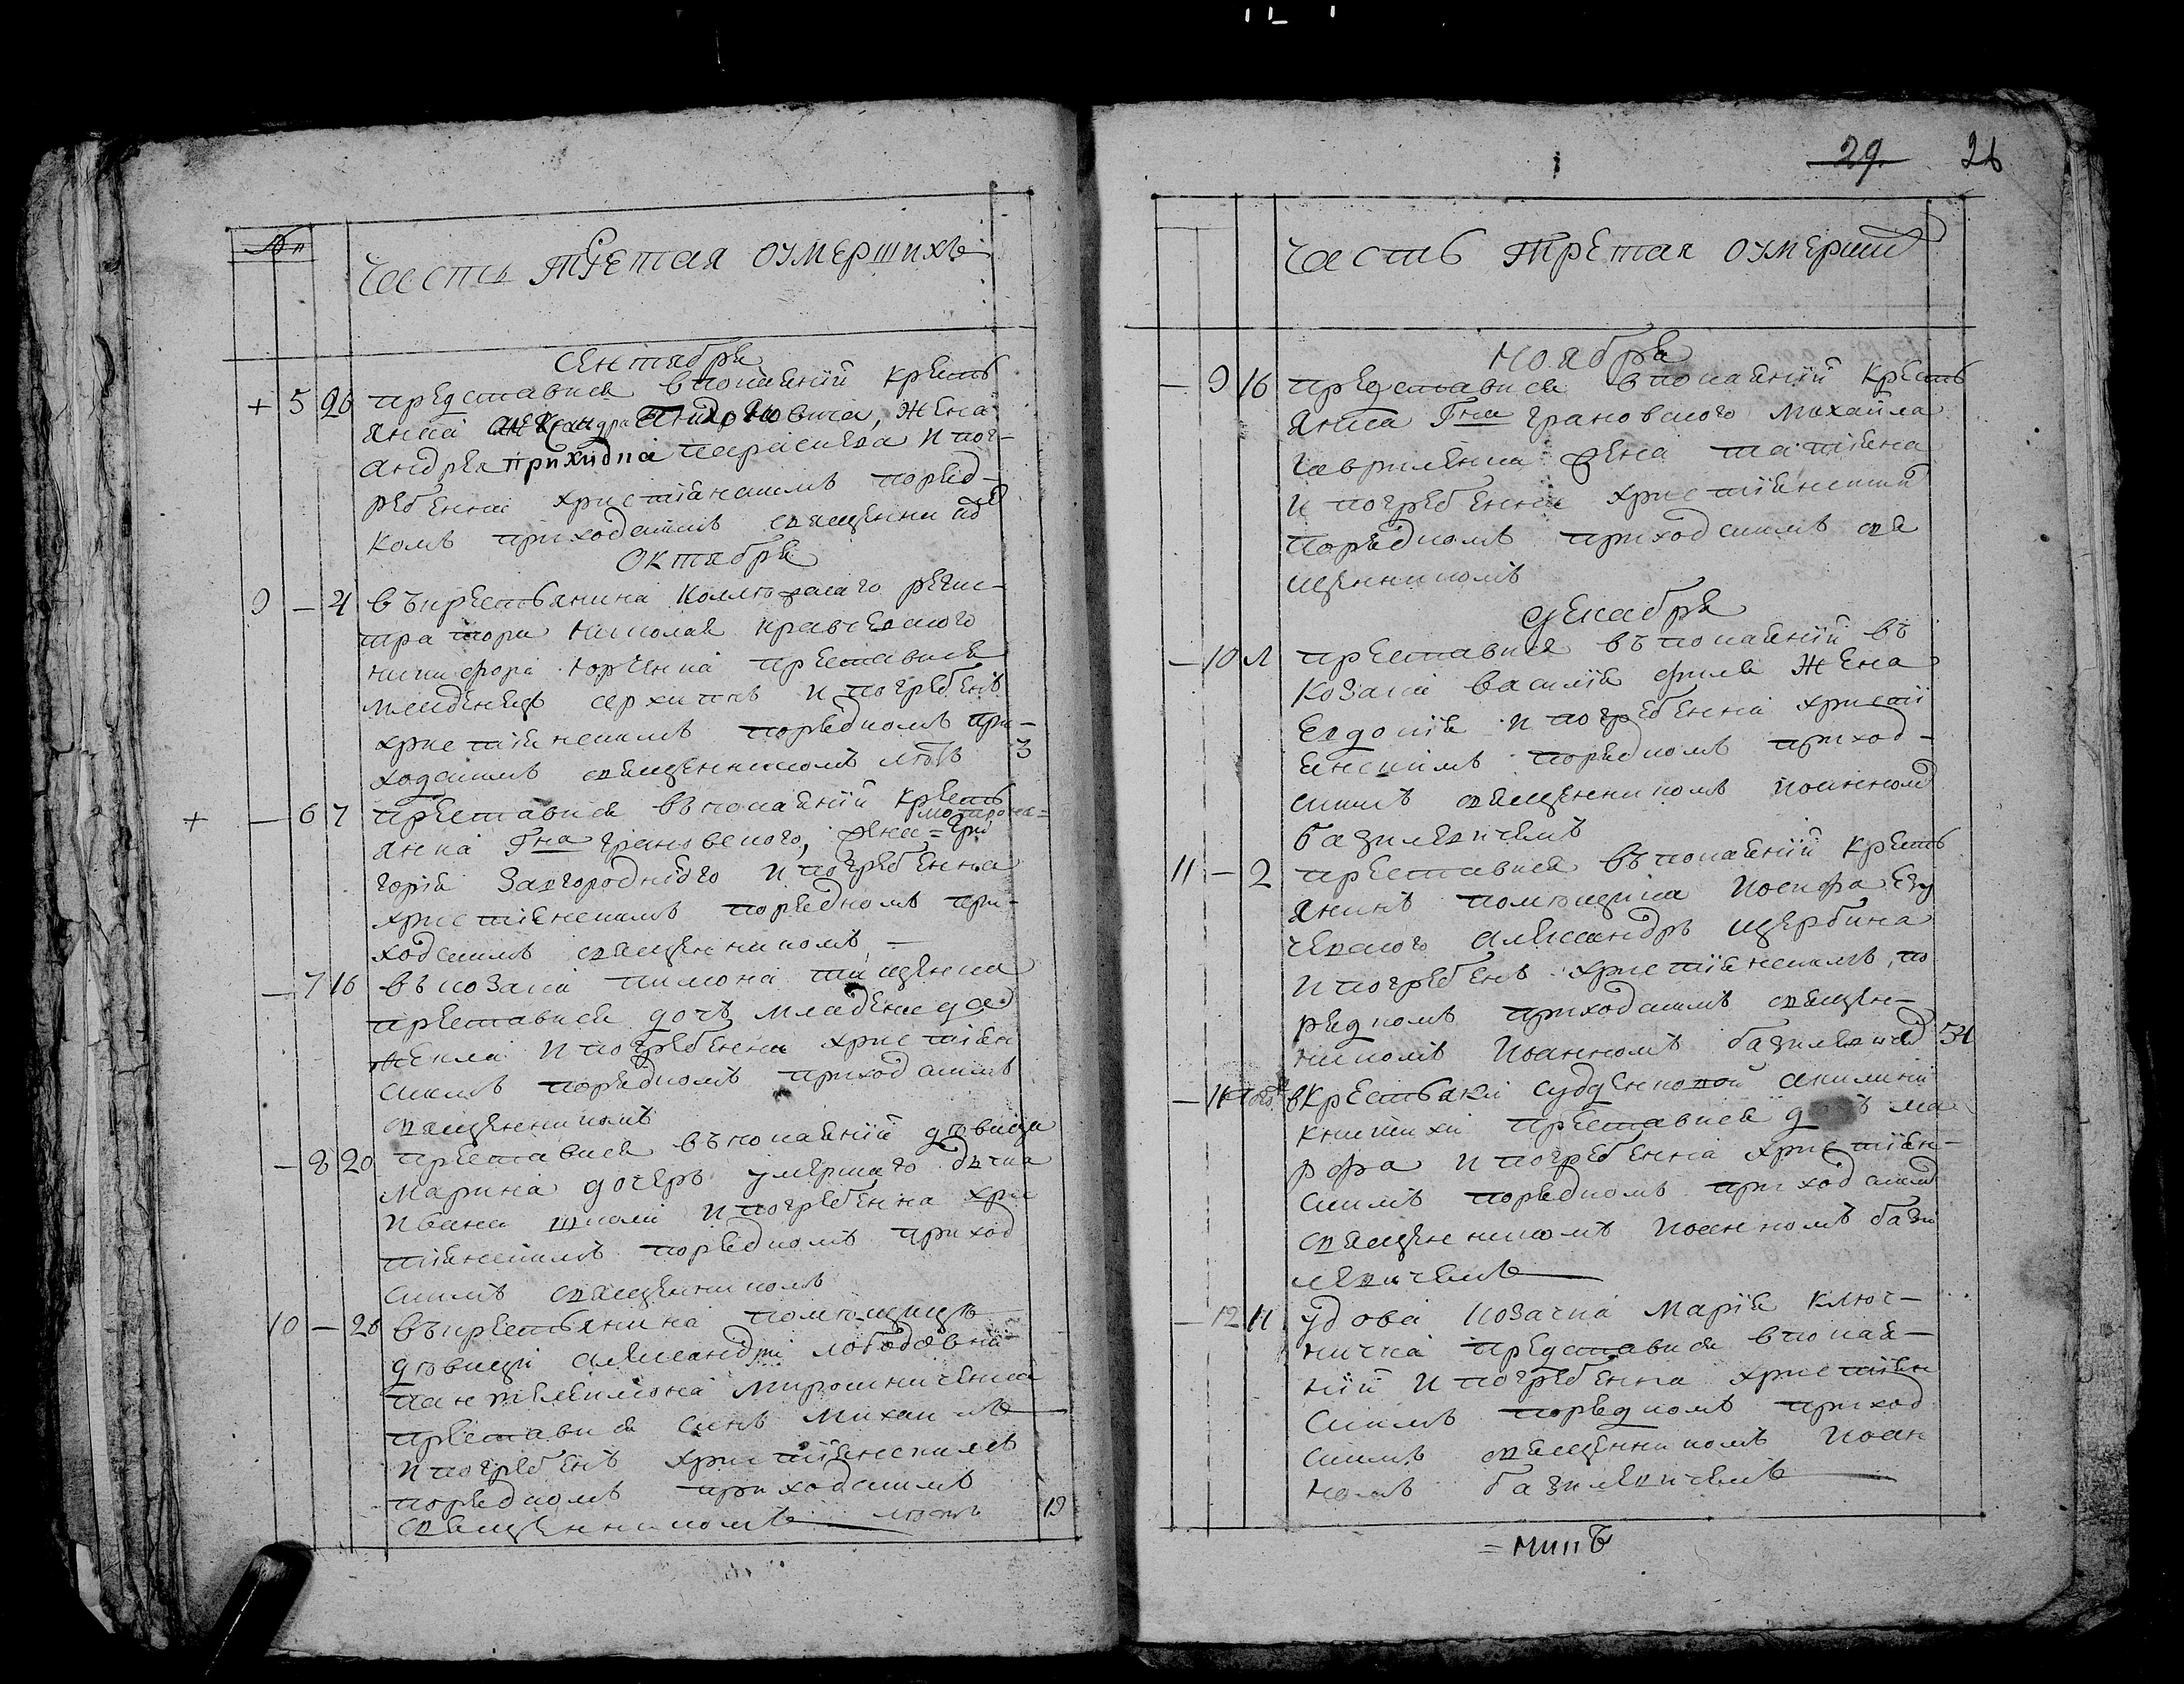 29. 26
№
Часть Третая оумершихъ
Сентабра
+ 5 20 представися впокаяніи кресть
янка Александра жена
андрея парасцева и пог-
ребенна христіанскимъ поряд-
комъ приходскимъ священникᲂ
Октабра
9 – 4 въ крестьянина коллежскаго регис-
тратора николая кравченского
никифора юрченка преставися
младенецъ архипъ и погребенъ
христіянскимъ порядкомъ при-
ходскимъ священникомъ лѣтъ 3
+ – 6 7 преставися въ покаяніи кресть
мотрона =
янка Гна грановского, жена = гри
горія Завгороднего и погребенна
христіянскимъ порядкомъ при-
ходскимъ священникомъ –
– 7 16 въ козака пимона тищенка
преставися дочъ младеница
текла и погребенна христіян
скимъ порядкомъ приходскимъ
священникомъ
– 8 20 преставися въ покаяніи дѣвица
Марина дочерь умершаго дячка
ивана и погребенна хри
стіянскимъ порядкомъ приход
скимъ священникомъ
10 – 26 въ крестьянина помѣщицѣ
дѣвици александри лободовни
пантелеимона мирошниченка
преставися синъ михаилъ
и погребенъ христіянскимъ
порядкомъ приходскимъ
священникомъ лѣтъ 19
Часть Третая оумерших
Ноября
– 9 16 представися в покаяніи кресть
янка Гна грановского михайла
гавриленка жена татіяна
и погребенна христіянским
порядкомъ приходскимъ свя
щенникомъ
Декабря
– 10 преставися въ покаяніи въ
козака василія жена
евдокія и погребенна христі
янскимъ порядкомъ приход-
скимъ священникомъ иоанном
базилевичемъ
11 – 2 преставися въ покаяніи кресть
янинъ помѣщика иосифа
александръ щербина
и погребенъ христіянскимъ по
рядкомъ приходскимъ священ-
никомъ иоанномъ базилевиче 54
– 11 вкрестьяки судденковой акилини
преставися ма
рфа и погребенна христіян-
скимъ порядкомъ приходским
священникомъ иоанномъ бази
левичемъ
– 12 11 удова козачка марія ключ-
ничка представися впокая-
ніи и погребенна христіян
скимъ порядкомъ приход
скимъ священникомъ иоан
номъ базилевичемъ